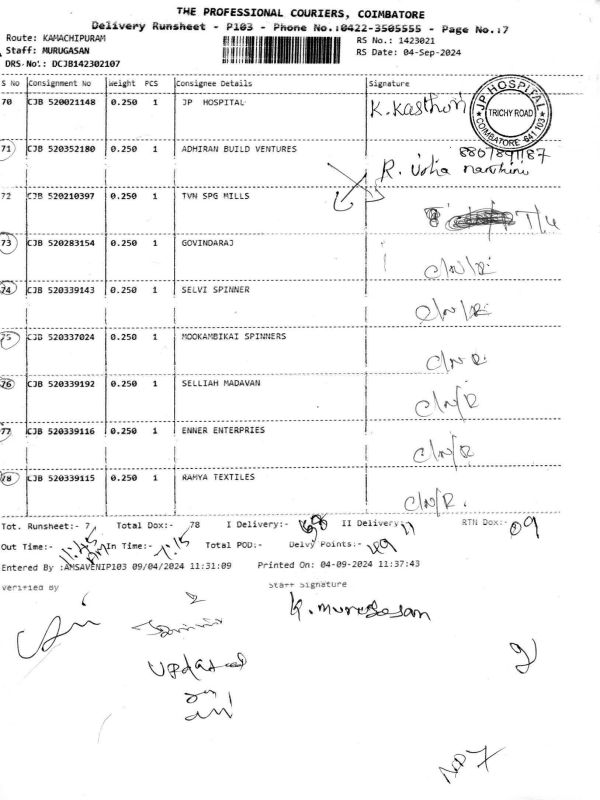 THE PROFESSIONAL COURIERS, COIMBATORE
Delivery Runsheet - P103 - Phone No.:0422-3505555 - Page No.:7
Route: KAMACHIPURAM RS No.: 1423021
Staff: MURUGASAN RS Date: 04-Sep-2024
DRS No.: DCJB142302107
S No Consignment No Weight PCS Consignee Details Signature
70 CJB 520021148 0.250 1 JP HOSPITAL K.Kasthuri
JP HOSPITAL TRICHY ROAD COIMBATORE 641 103
71 CJB 520352180 0.250 1 ADHIRAN BUILD VENTURES
R. Usha
72 CJB 520210397 0.250 1 TVN SPG MILLS
73 CJB 520283154 0.250 1 GOVINDARAJ
C/N/R
74 CJB 520339143 0.250 1 SELVI SPINNER
C/N/R
75 CJB 520337024 0.250 1 MOOKAMBIKAI SPINNERS
C/N R
76 CJB 520339192 0.250 1 SELLIAH MADAVAN
C/N/R
77 CJB 520339116 0.250 1 ENNER ENTERPRIES
C/N/R
78 CJB 520339115 0.250 1 RAMYA TEXTILES
C/N/R.
Tot. Runsheet:- 7 Total Dox:- 78 I Delivery:- II Delivery:- 11 RTN Dox:- 09
Out Time:- In Time:- 7:15 Total POD:- Delvy Points:- 49
Entered By :AMSAVENIP103 09/04/2024 11:31:09 Printed On: 04-09-2024 11:37:43
Verified By Staff Signature
K. murugesan
updated
NP 7